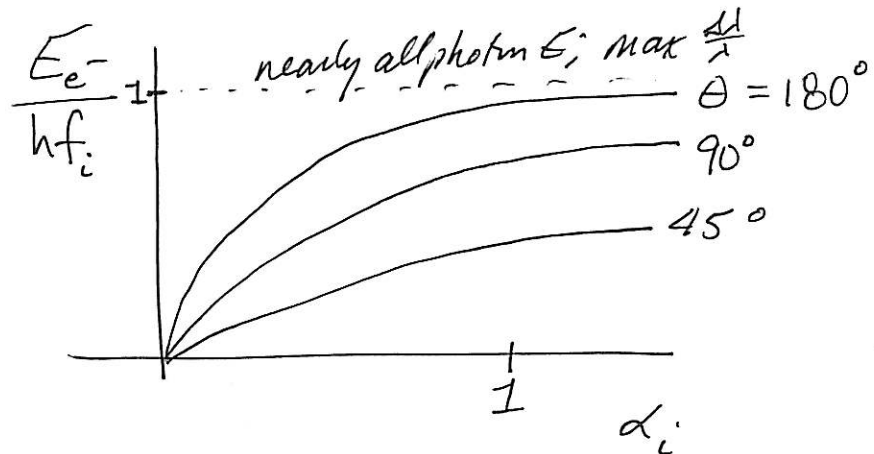 E_e-
hf_i
1
nearly all photon E; max Δλ/λ
θ = 180°
90°
45°
1
α_i